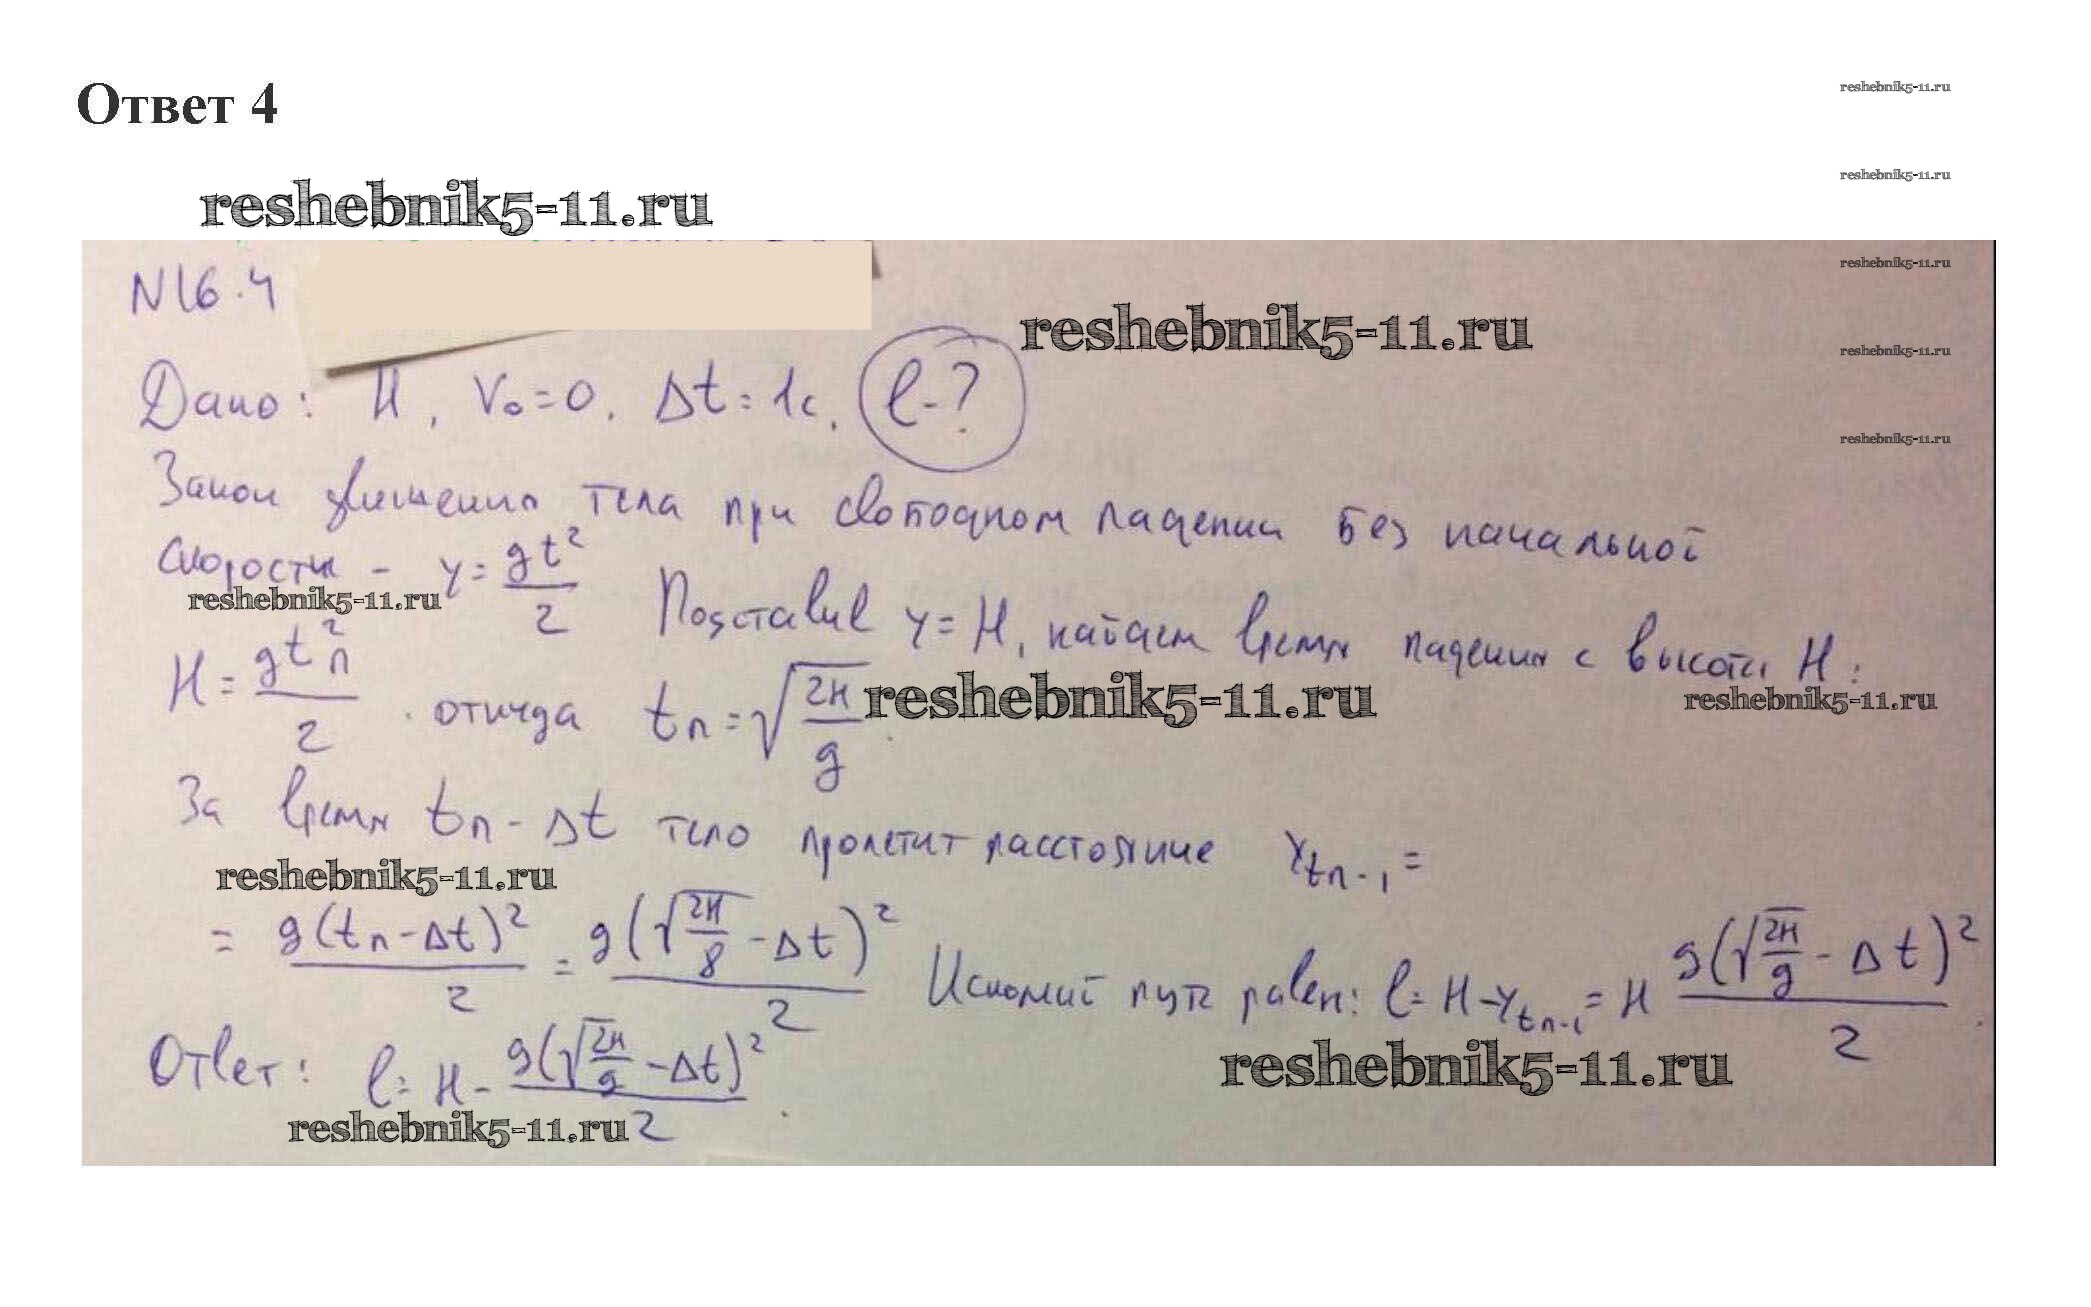 Ответ 4
reshebnik5-11.ru
reshebnik5-11.ru
reshebnik5-11.ru
N16.4
reshebnik5-11.ru
reshebnik5-11.ru
reshebnik5-11.ru
Дано: H, V₀=0, Δt=1c, l-?
reshebnik5-11.ru
Закон движения тела при свободном падении без начальной
скорости - y = gt²/2 Подставив y=H, найдем время падения с высоты H:
reshebnik5-11.ru
H = gtₙ²/2 откуда tₙ = √(2H/g)
reshebnik5-11.ru
reshebnik5-11.ru
За время tп - Δt тело пролетит расстояние Y_tп-1 =
reshebnik5-11.ru
= g(tп-Δt)²/2 = g(√(2H/8) - Δt)²/2 Искомый путь равен: l = H - Y_tп-1 = H g(√(2H/g) - Δt)²/2
reshebnik5-11.ru
Ответ: l = H - g(√(2H/g) - Δt)²/2
reshebnik5-11.ru